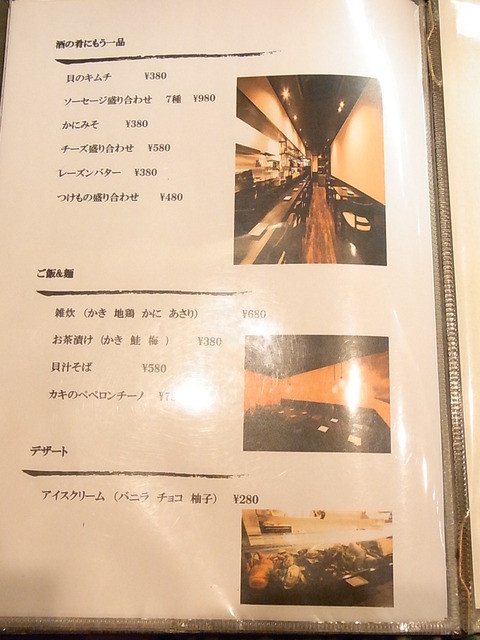 酒の肴にもう一品
貝のキムチ ¥380
ソーセージ盛り合わせ 7種 ¥980
かにみそ ¥380
チーズ盛り合わせ ¥580
レーズンバター ¥380
つけもの盛り合わせ ¥480
ご飯&麺
雑炊 (かき 地鶏 かに あさり) ¥680
お茶漬け (かき 鮭 梅 ) ¥380
貝汁そば ¥580
カキのペペロンチーノ
デザート
アイスクリーム (バニラ チョコ 柚子) ¥280